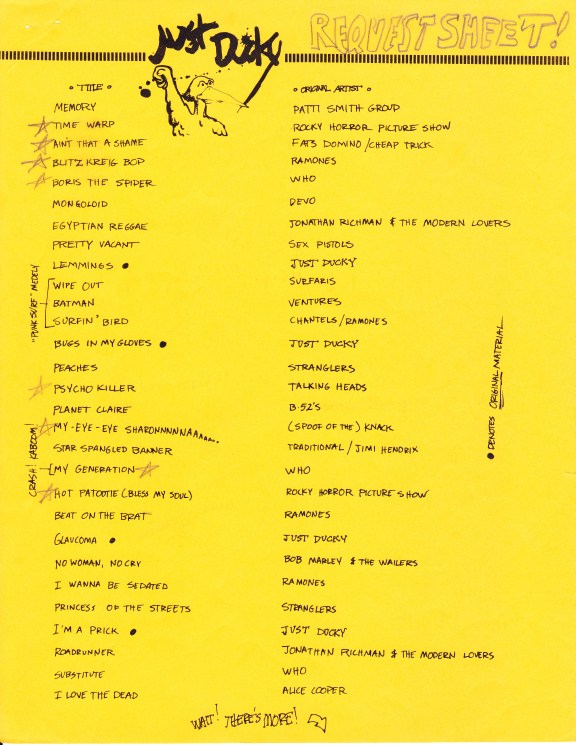 JUST DUCKY
REQUEST SHEET!
• TITLE • • ORIGINAL ARTIST •
MEMORY PATTI SMITH GROUP
TIME WARP ROCKY HORROR PICTURE SHOW
AIN'T THAT A SHAME FATS DOMINO/CHEAP TRICK
BLITZ KREIG BOP RAMONES
BORIS THE SPIDER WHO
MONGOLOID DEVO
EGYPTIAN REGGAE JONATHAN RICHMAN & THE MODERN LOVERS
PRETTY VACANT SEX PISTOLS
LEMMINGS • JUST DUCKY
"PUNK SURF" MEDELY
WIPE OUT SURFARIS
BATMAN VENTURES
SURFIN' BIRD CHANTELS/RAMONES
BUGS IN MY GLOVES • JUST DUCKY
PEACHES STRANGLERS
PSYCHO KILLER TALKING HEADS
PLANET CLAIRE B-52'S
MY-EYE-EYE SHARONNNNNAAAA..... (SPOOF OF THE) KNACK
STAR SPANGLED BANNER TRADITIONAL/JIMI HENDRIX
CRASH! KABOOM!
MY GENERATION WHO
HOT PATOOTIE (BLESS MY SOUL) ROCKY HORROR PICTURE SHOW
BEAT ON THE BRAT RAMONES
GLAUCOMA • JUST DUCKY
NO WOMAN, NO CRY BOB MARLEY & THE WAILERS
I WANNA BE SEDATED RAMONES
PRINCESS OF THE STREETS STRANGLERS
I'M A PRICK • JUST DUCKY
ROADRUNNER JONATHAN RICHMAN & THE MODERN LOVERS
SUBSTITUTE WHO
I LOVE THE DEAD ALICE COOPER
• DENOTES ORIGINAL MATERIAL
WAIT! THERE'S MORE!